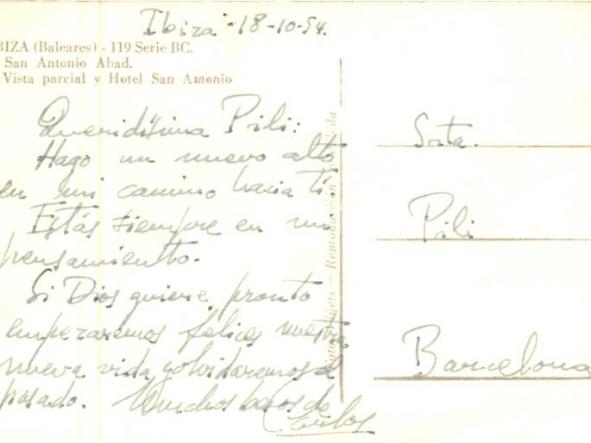 Ibiza 18-10-54.
IBIZA (Baleares) - 119 Serie BC.
San Antonio Abad.
Vista parcial y Hotel San Antonio
Queridísima Pili:
Hago un nuevo alto
en mi camino hacia ti
Estás siempre en mi
pensamiento.
Si Dios quiere, pronto
empezaremos felices nuestra
nueva vida y olvidaremos el
pasado. Muchos besos de
Carlos
Srta.
Pili
Barcelona